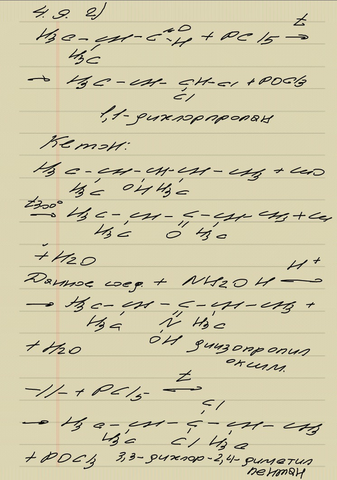 4.9. 2)
H3C - CH - C =O -H + PCl5 t→
H3C
→ H3C - CH - CH-Cl + POCl3
Cl
1,1-дихлорпропан
Кетон:
H3C - CH - CH - CH - CH3 + CuO
H3C OH H3C
t300° → H3C - CH - C - CH - CH3 + Cu
H3C O H3C
+ H2O
Данное соед. + NH2OH H+ →
→ H3C - CH - C - CH - CH3 +
H3C N H3C
+ H2O OH диизопропил
оксим.
-//- + PCl5 t→
Cl
→ H3C - CH - C - CH - CH3
H3C Cl H3C
+ POCl3 3,3-дихлор-2,4-диметил
пентан